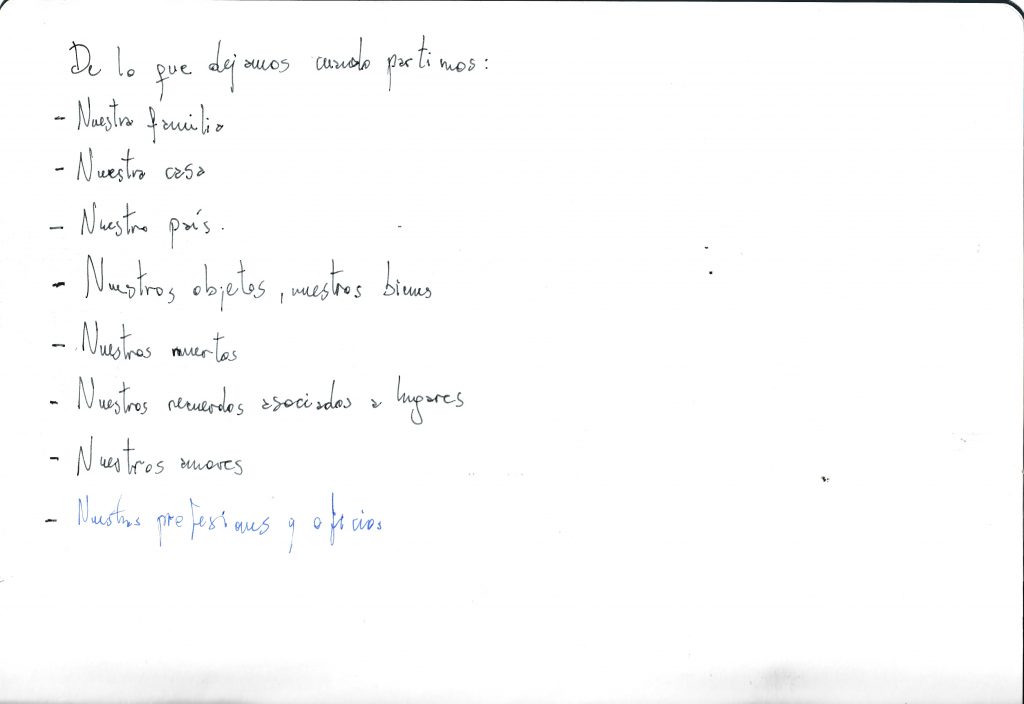 De lo que dejamos cuando partimos:
- Nuestra familia
- Nuestra casa
- Nuestro país.
- Nuestros objetos, nuestros bienes
- Nuestros muertos
- Nuestros recuerdos asociados a lugares
- Nuestros amores
- Nuestras profesiones y oficios